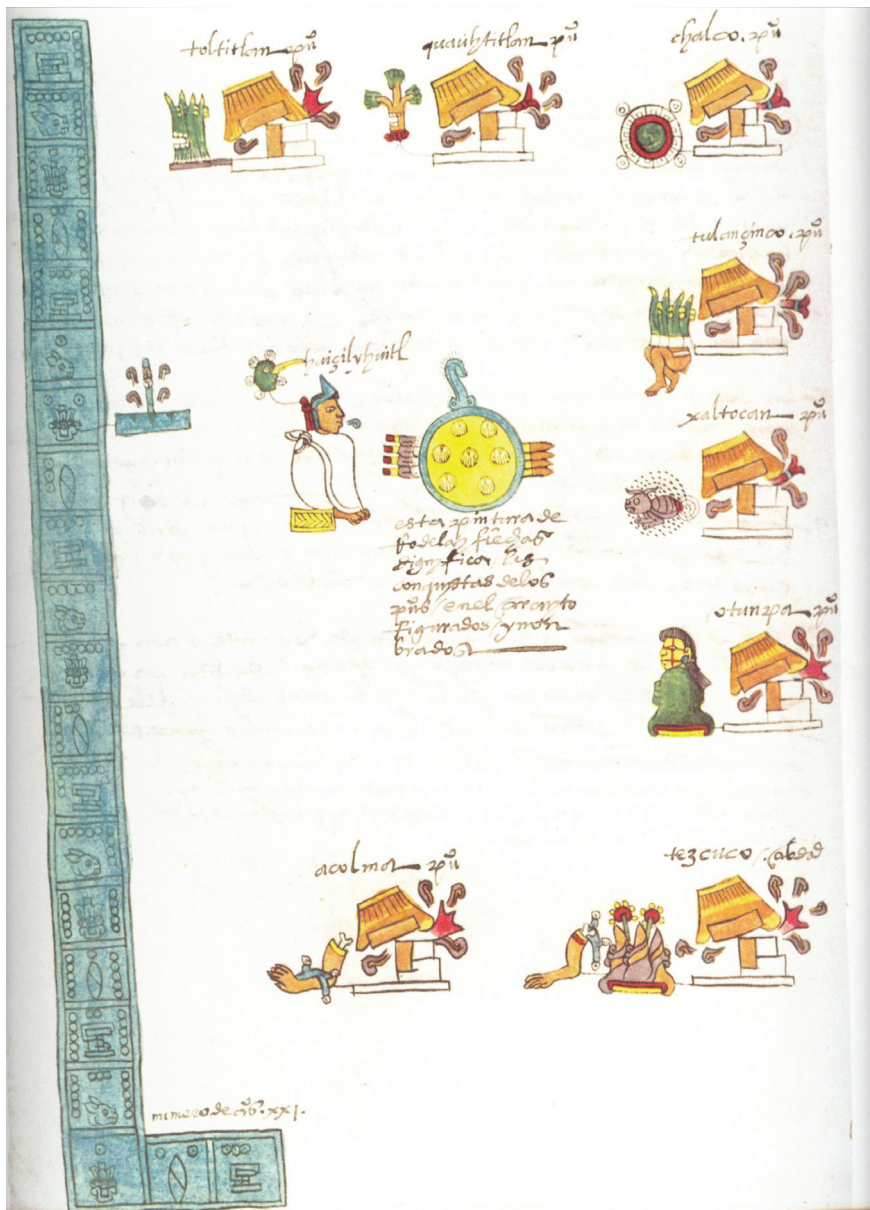 toltitlan pũ
quauhtitlan pũ
chalco. pũ
tulançinco. pũ
huiçilyhuitl
xaltocan pũ
esta pintura de
rodelas y flechas
significa / las
conquistas de los
pũs / en el [...]
figurados / y non
brados
otunpa pũ
acolma pũ
tezcuco /
numero de años. xxj.